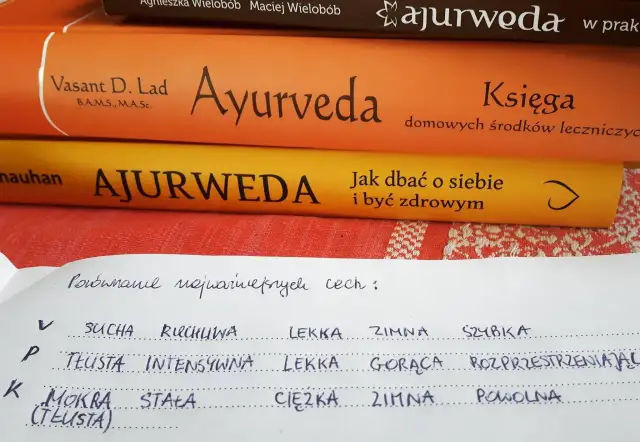 Agnieszka Wielobób Maciej Wielobób
ajurweda w prak
Vasant D. Lad
B.A.M.S., M.A.Sc.
Ayurveda
Księga
domowych środków leczniczyc
hauhan
AJURWEDA
Jak dbać o siebie
i być zdrowym
Porównanie najważniejszych cech:
V SUCHA RUCHLIWA LEKKA ZIMNA SZYBKA
P TŁUSTA INTENSYWNA LEKKA GORĄCA ROZPRZESTRZENIAJĄC
K MOKRA STAŁA CIĘŻKA ZIMNA POWOLNA
(TŁUSTA)